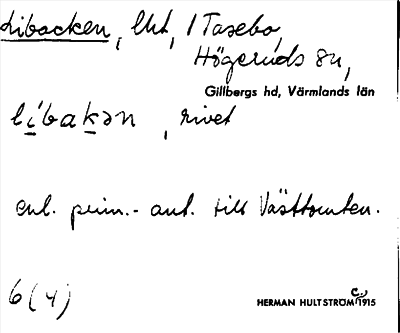 Libacken, lht, 1 Tasebo,
Högeruds sn,
Gillbergs hd, Värmlands län
líbakən, rivet
enl. prim.-ant. till Västtomten.
6(4)
HERMAN HULTSTRÖM C:a 1915